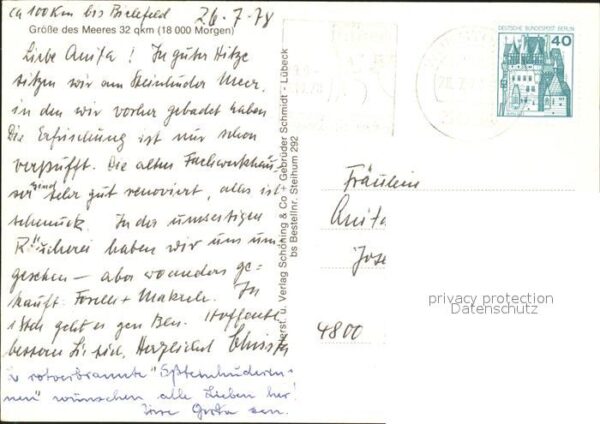 ca 100 Km bis Bielefeld 26-7-78
Größe des Meeres 32 qkm (18 000 Morgen)
Liebe Anita! In guter Hitze
sitzen wir am Steinhuder Meer,
in den wir vorher gebadet haben
Die Erfrischung ist nur schon
verpufft. Die alten Fachwerkhäu-
ser sind sehr gut renoviert, alles ist
schmuck. In der umseitigen
Räucherei haben wir uns um-
gesehen – aber woanders ge-
kauft: Forelle + Makrele. In
1 Std. geht es gen Blm. Hoffentl.
bessern Sie sich, Herzlichst
rotverbrannte "Steinhuderin-
nen" wünschen alle Lieben her!
Ihre Greta
Herst. u. Verlag Schöning & Co + Gebrüder Schmidt - Lübeck
bs Bestellnr. Steihum 292
DEUTSCHE BUNDESPOST BERLIN
40
Fräulein
Anita
Jose
4800
privacy protection
Datenschutz